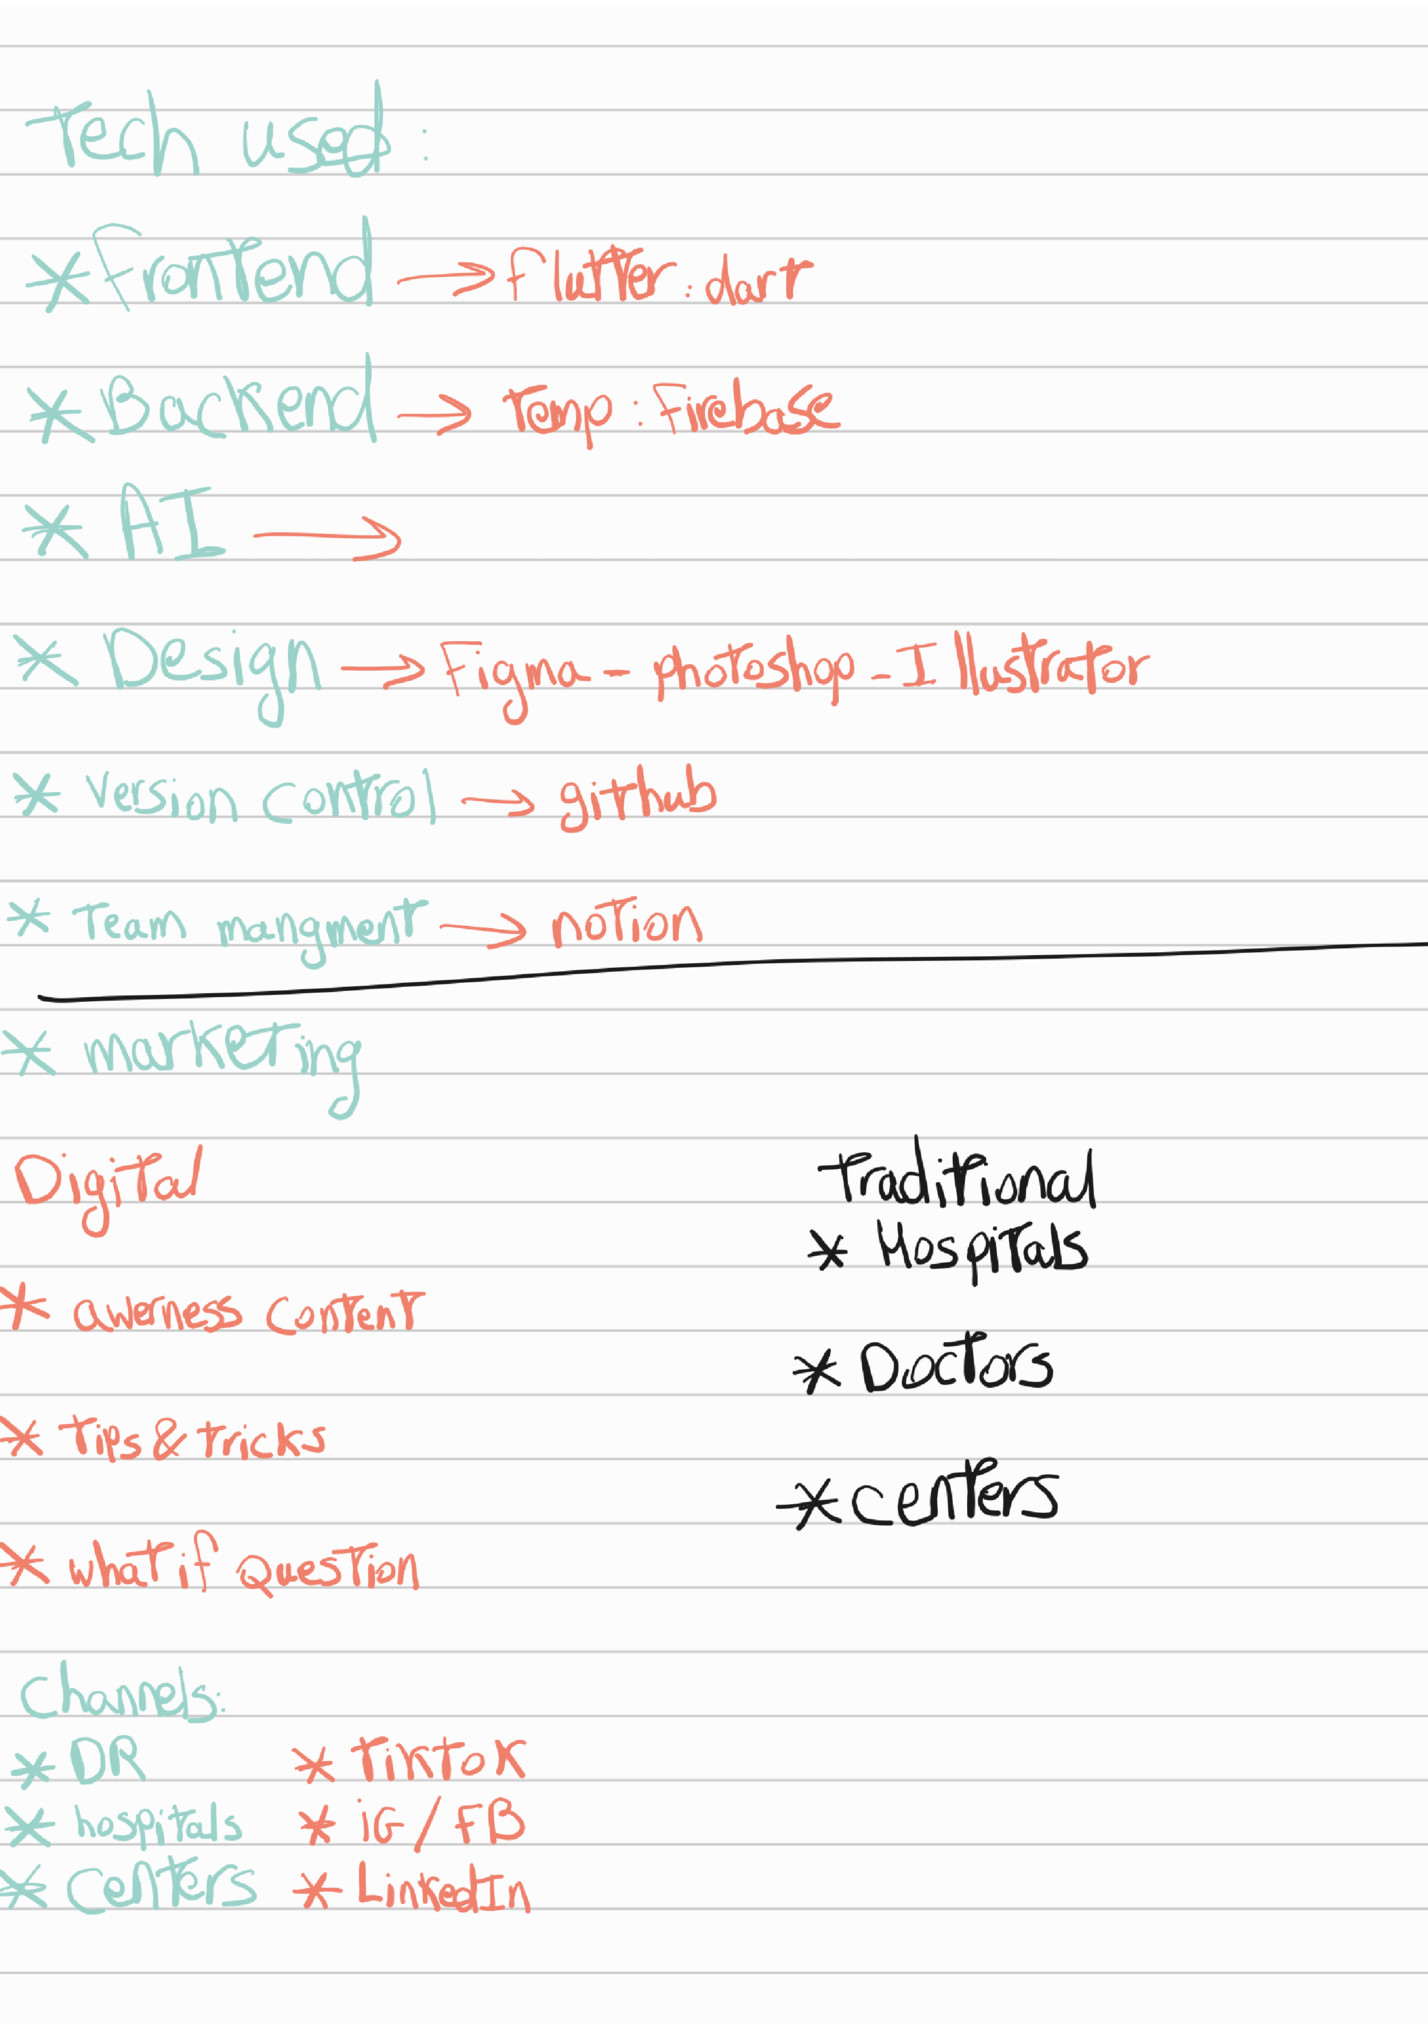 Tech used:
* Frontend → Flutter: dart
* Backend → Temp: Firebase
* AI →
* Design → Figma - photoshop - Illustrator
* Version control → github
* Team mangment → notion
* marketing
Digital
* awerness content
* Tips & tricks
* what if Question
Traditional
* Hospitals
* Doctors
* centers
Channels:
* DR * TikTok
* hospitals * iG / FB
* Centers * LinkedIn